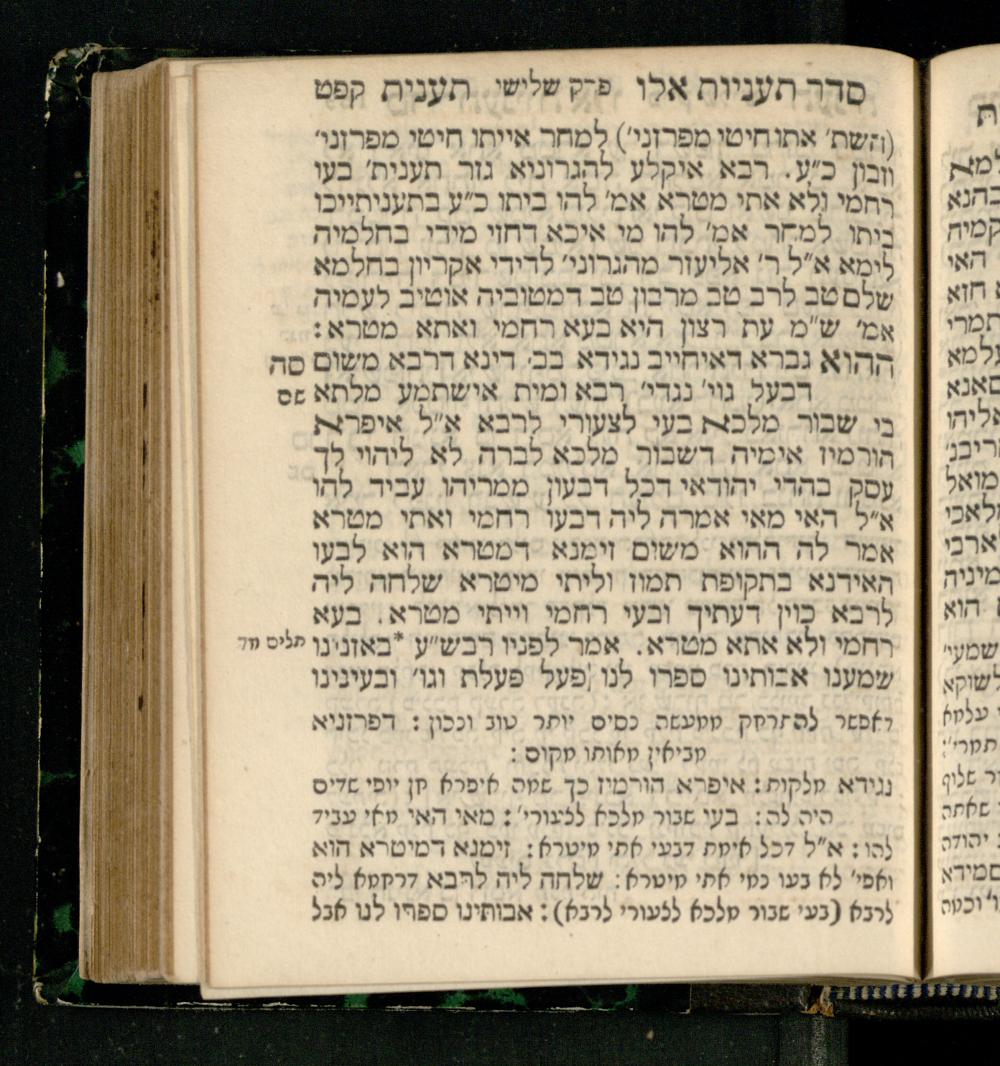 סדר תעניות אלו פרק שלישי תענית קפט
(והשת׳ אתו חיטי מפרזני׳) למחר אייתו חיטי מפרזני׳
וזבון כ״ע. רבא איקלע להגרוניא גזר תענית׳ בעו
רחמי ולא אתי מטרא אמ׳ להו ביתו כ״ע בתעניתייכו
ביתו למחר אמ׳ להו מי איכא דחזי מידי בחלמיה
לימא א״ל ר׳ אליעזר מהגרוני׳ לדידי אקריון בחלמא
שלם טב לרב טב מרבון טב דמטוביה אוטיב לעמיה
אמ׳ ש״מ עת רצון היא בעא רחמי ואתא מטרא:
ההוא גברא דאיחייב נגידא בב׳ דינא דרבא משום סה
דבעל גוי׳ נגדי׳ רבא ומית אישתמע מלתא שם
בי שבור מלכא בעי לצעורי לרבא א״ל איפרא
הורמיז אימיה דשבור מלכא לברה לא ליהוי לך
עסק בהדי יהודאי דכל דבעון ממריהו עביד להו
א״ל האי מאי אמרה ליה דבעו רחמי ואתי מטרא
אמר לה ההוא משום זימנא דמטרא הוא לבעו
האידנא בתקופת תמוז וליתי מיטרא שלחה ליה
לרבא כוין דעתיך ובעי רחמי וייתי מטרא. בעא
רחמי ולא אתא מטרא. אמר לפניו רבש״ע *באזנינו תלים מד
שמענו אבותינו ספרו לנו פעל פעלת וגו׳ ובעינינו
ראפשר להתרחק ממעשה נסים יותר טוב ונכון: דפרזניא
מביאין מאותו מקום:
נגידא מלקות: איפרא הורמיז כך שמה איפרא חן יופי שדים
היה לה: בעי שבור מלכא לצעורי׳: מאי האי מאי עביד
להו: א״ל דכל אימת דבעי אתי מיטרא: זימנא דמיטרא הוא
ואפי׳ לא בעו נמי אתי מיטרא: שלחה ליה לרבא דרקמא ליה
לרבא (בעי שבור מלכא לצעורי לרבא): אבותינו ספרו לנו אבל